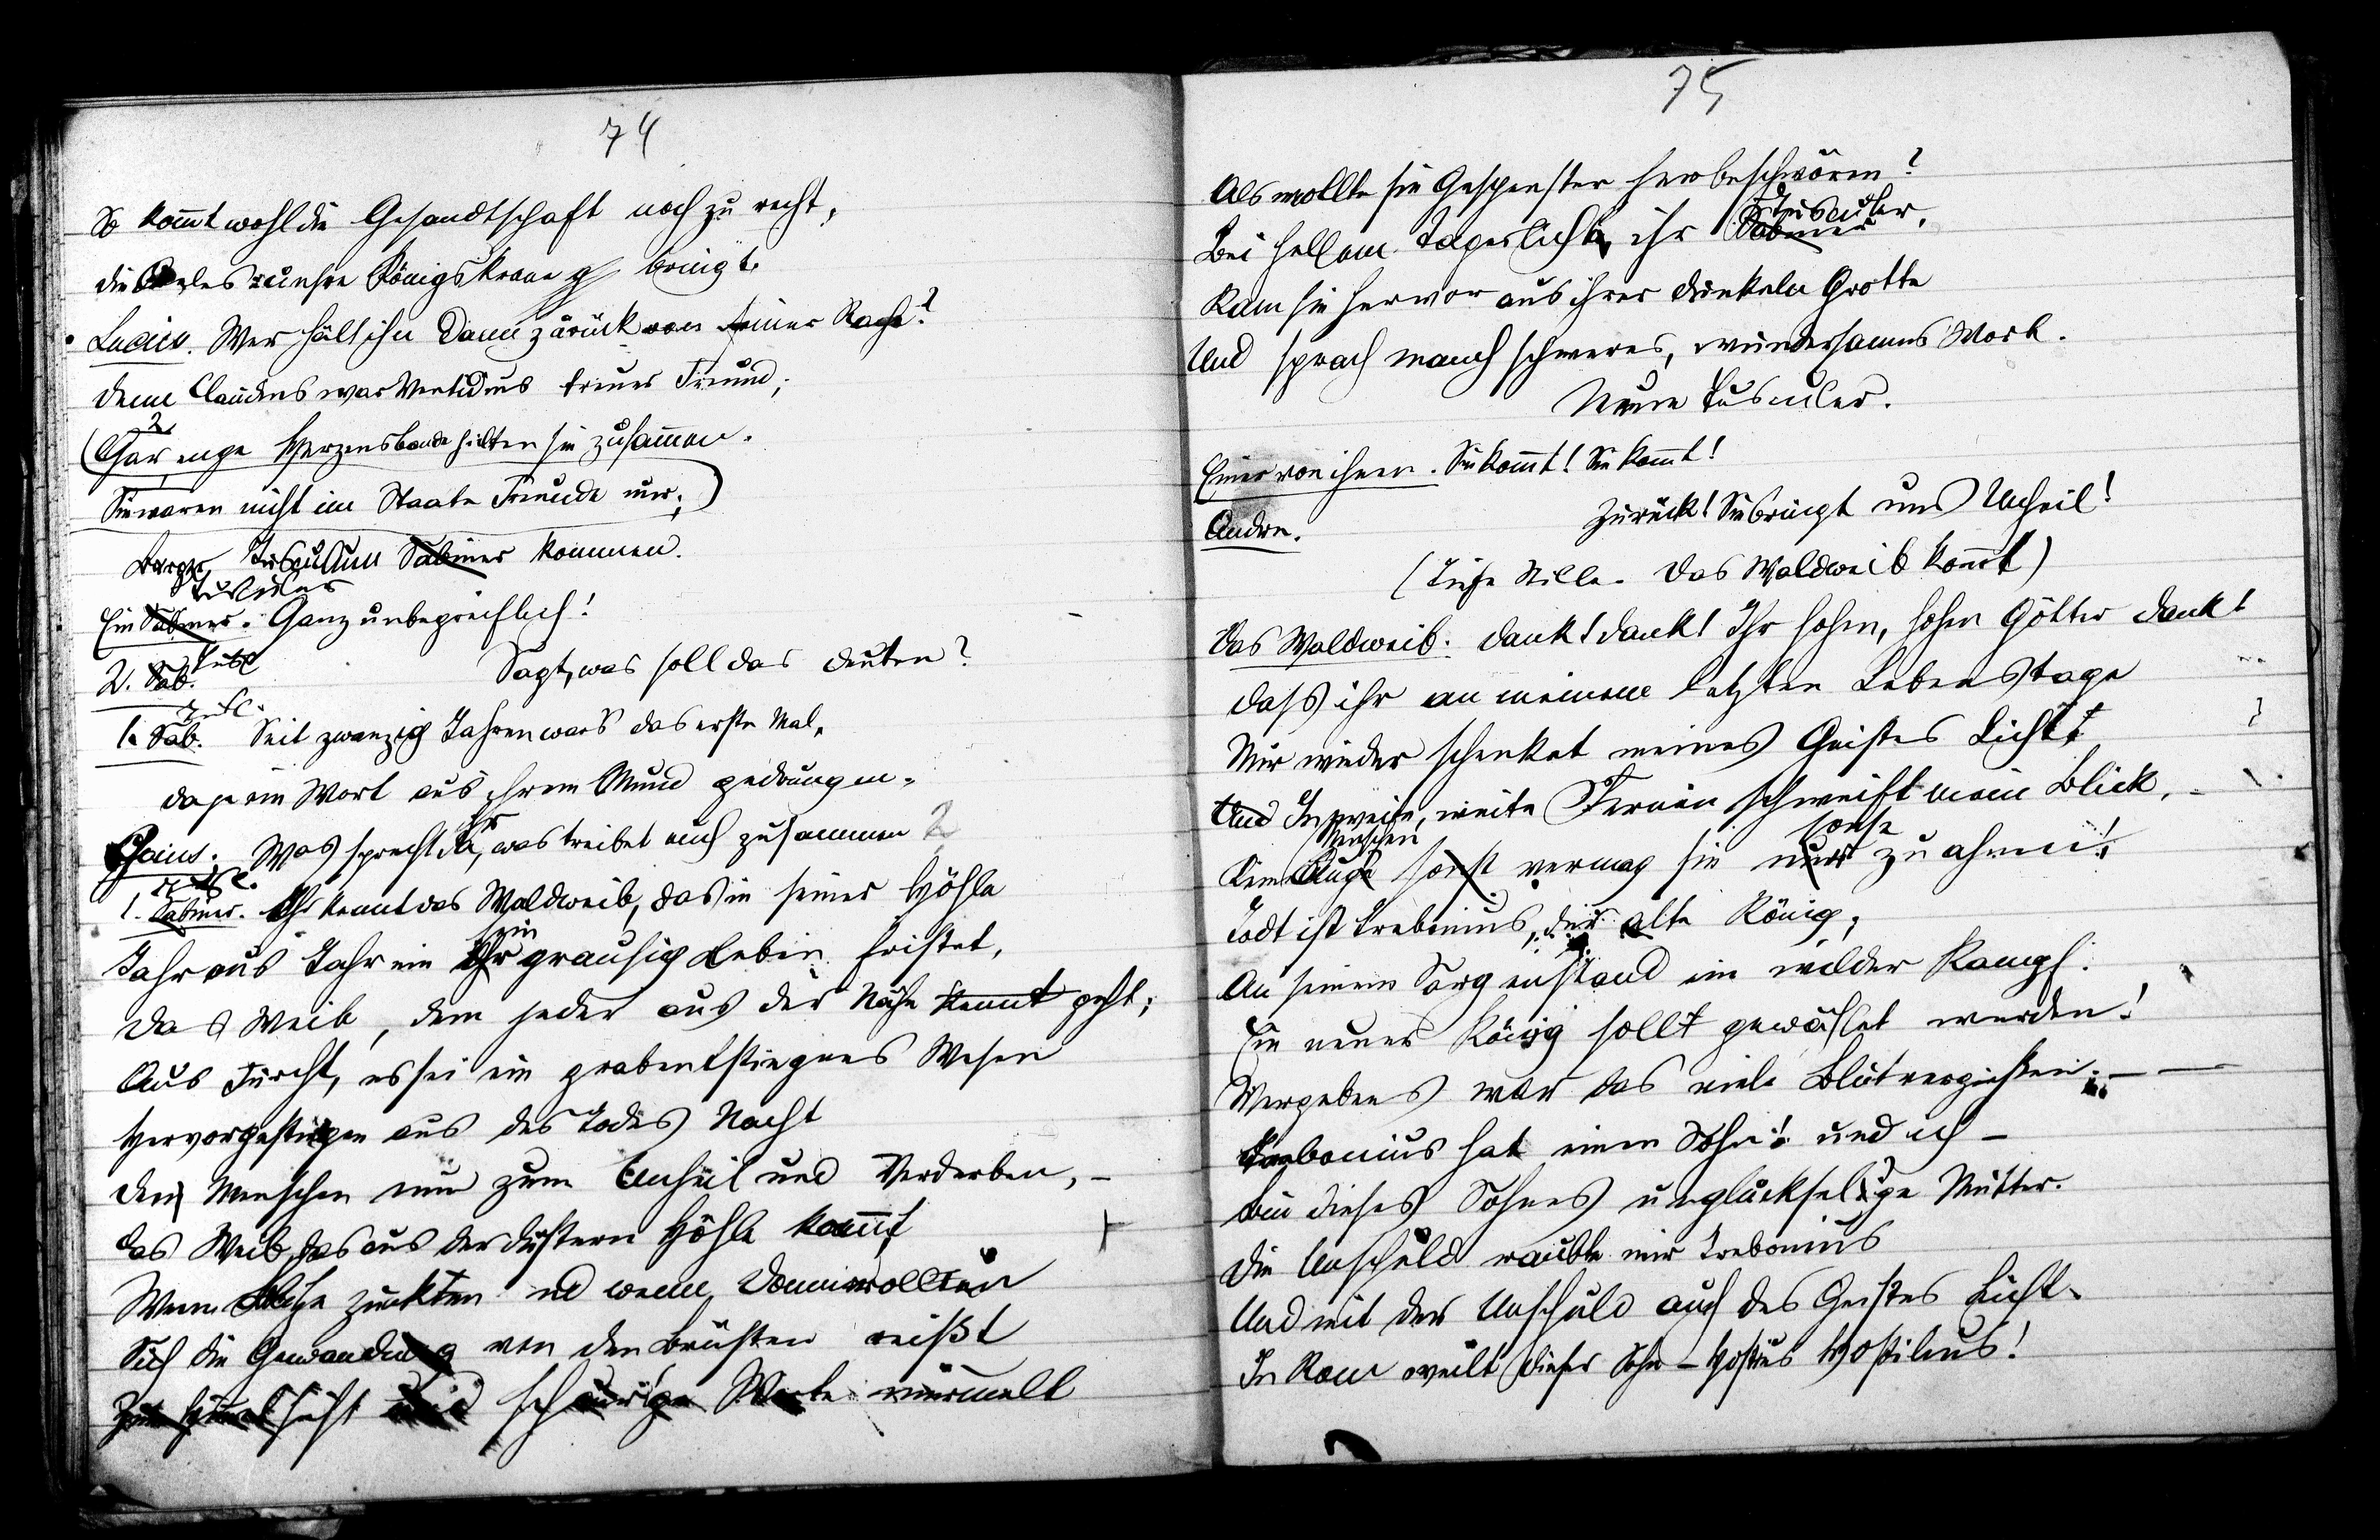 74
So kommt wohl die Gesandtschaft noch zu recht,
die Celes zu ihre Königskrone bringt.
Lucius. Wer hält ihn dann zurück von seiner Rache?
denn Claudius war Ventidius treuer Freund;
(Gar enge Herzensbande hielten sie zusammen.
Sie waren nicht im Staate Freunde nur;)
Tusculum Sabiner kommen.
Tusculer
Ein Sabiner. Ganz unbegreiflich!
2. Sab. Tusc Sagt, was soll das deuten?
1. Sab. Tusc. Seit zwanzig Jahren war's das erste Mal,
daß ein Wort aus ihrem Mund gedrungen.
Gaius. Was sprecht Ihr, was treibet euch zusammen?
1. Sabiner. Tusc. Ihr kennt das Waldweib, das in seiner Höhle
Jahr aus Jahr ein Ihr sein grausig Leben fristet,
das Weib, dem jeder aus der Nähe kennt geht;
Aus Furcht, es sei ein grabentstiegnes Wesen
Hervorgestiegen aus des Todes Nacht
den Menschen nur zum Unheil und Verderben, –
das Weib, das aus der düstern Höhle kommt,
Wenn Blitze zuckten und wenn Donner rollten
Sich die Gewandung von den Brüsten reißt
sieht und schaurige Worte murmelt
75
Als wollte sie Gespenster herbeschwören?
Bei hellem Tageslicht, ihr Sabiner Tusculer,
Kam sie hervor aus ihrer dunkeln Grotte
Und sprach manch schweres, wundersames Wort.
Neue Tusculer.
Einer von ihnen. Sie kommt! Sie kommt!
Andre. Zurück! Sie bringt uns Unheil!
(Tiefe Stille. Das Waldweib kommt)
Das Waldweib. dank! dank! Ihr hohen, hohen Götter dank!
dass ihr an meinem letzten Lebenstage
Mir wieder schenket meines Geistes Licht,
Und In weite, weite Fernen schweift mein Blick, –
Kein Auge Menschen sonst vermag sie nur sonst zu ahnen!
Todt ist Trebonius, der alte König;
An seinem Sarg enstand ein wilder Kampf:
Ein neuer König sollt gewählet werden!
Vergebens war das viele Blutvergießen. — —
Trebonius hat einen Sohn! und ich –
bin dieses Sohnes unglückselige Mutter.
Die Unschuld raubte mir Trebonius
Und mit der Unschuld auch des Geistes Licht.
In Rom weilt dieser Sohn – Hostus Hostilius!